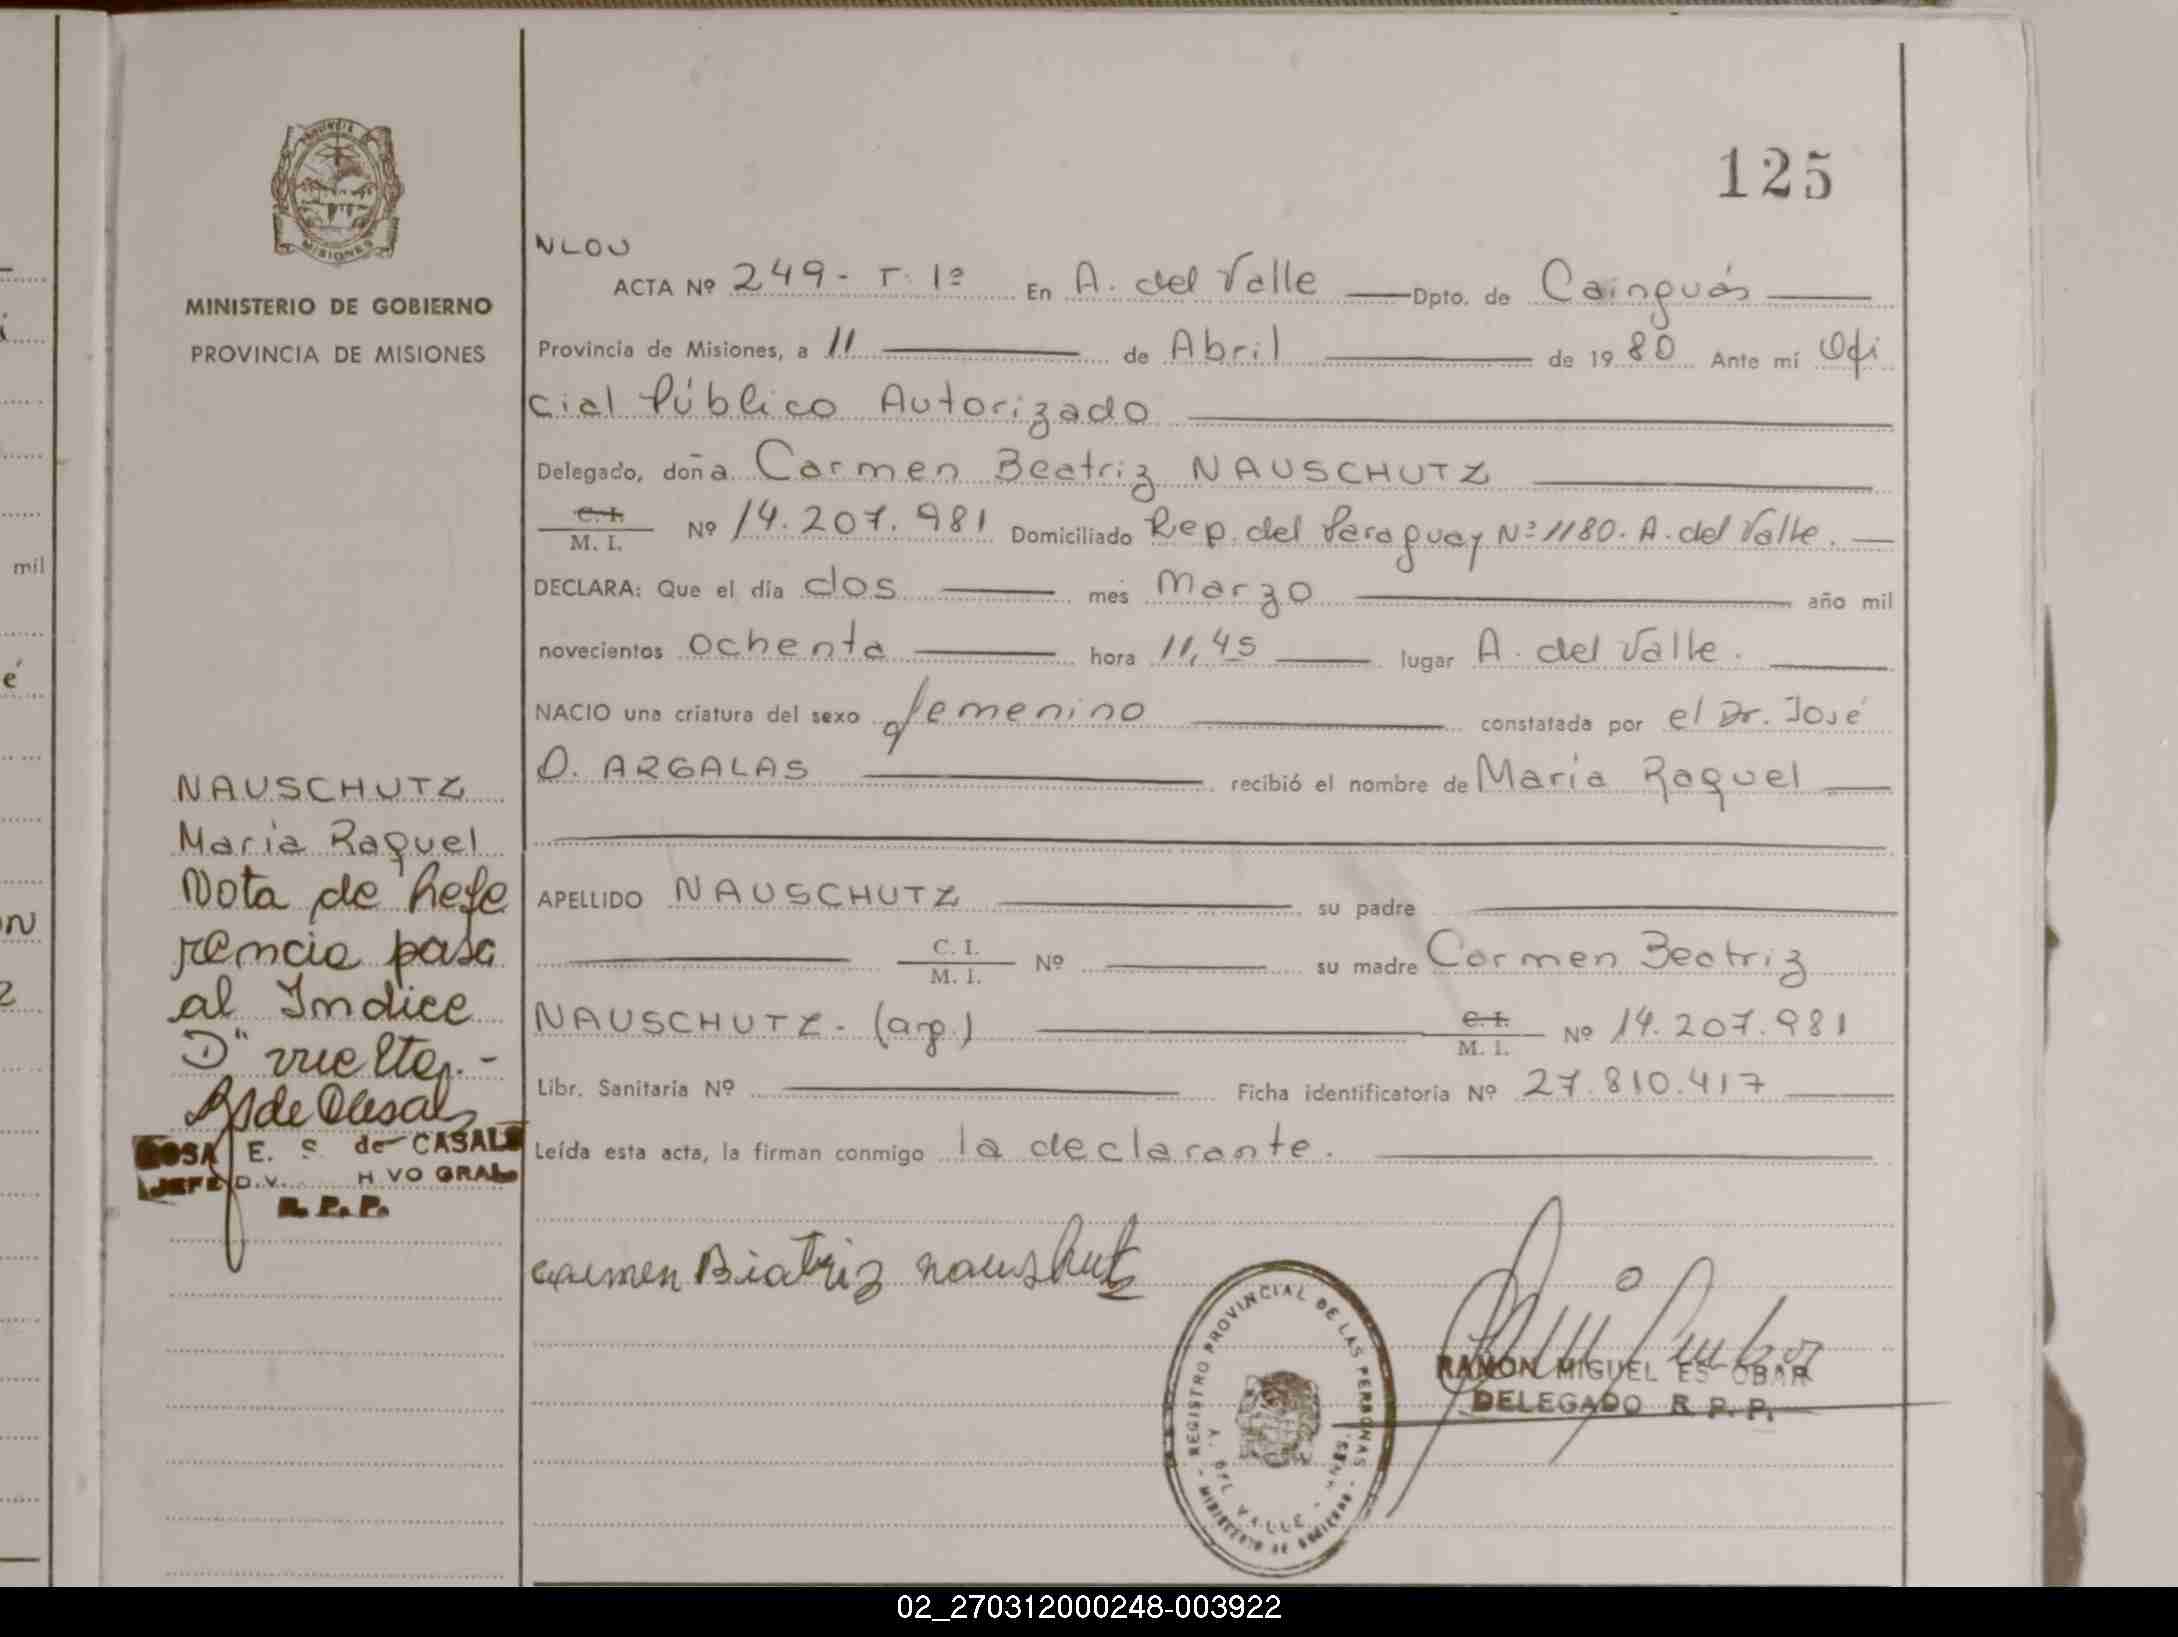 125
PROVINCIA
MISIONES
MINISTERIO DE GOBIERNO
PROVINCIA DE MISIONES
NLOU
ACTA Nº 249- T. 1º En A. del Valle Dpto. de Cainguás
Provincia de Misiones, a 11 de Abril de 1980 Ante mí Ofi
cial Público Autorizado
Delegado, doña Carmen Beatriz NAUSCHUTZ
C. I.
M. I. Nº 14.207.981 Domiciliado Rep. del Paraguay Nº 1180. A. del Valle.
DECLARA: Que el día dos mes Marzo año mil
novecientos ochenta hora 11,45 lugar A. del Valle.
NACIO una criatura del sexo femenino constatada por el Dr. José
O. ARGALAS recibió el nombre de María Raquel
APELLIDO NAUSCHUTZ su padre
C. I.
M. I. Nº su madre Carmen Beatriz
NAUSCHUTZ- (arg.) C. I.
M. I. Nº 14.207.981
Libr. Sanitaria Nº Ficha identificatoria Nº 27.810.417
Leída esta acta, la firman conmigo la declarante.
carmen Biatriz naushutz
REGISTRO PROVINCIAL DE LAS PERSONAS
A. DEL VALLE
MINISTERIO DE GOBIERNO
RAMON MIGUEL ES OBAR
DELEGADO R. P. P.
NAUSCHUTZ
María Raquel
Nota de Refe
rencia pasa
al Indice
D" vuelta.-
ROSA E. S. de CASALS
JEFE D.V. H VO GRAL
R. P. P.
mil
é
02_270312000248-003922